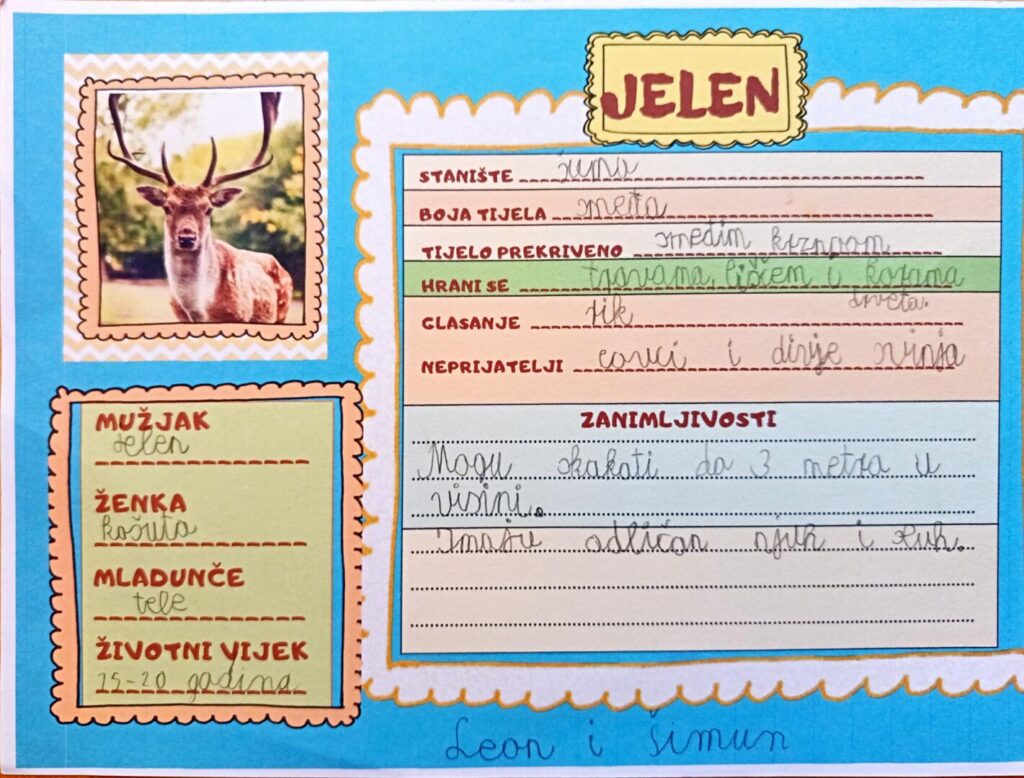 JELEN
STANIŠTE šuma
BOJA TIJELA smeđa
TIJELO PREKRIVENO smeđim krznom
HRANI SE travama, lišćem i korama
drveta.
GLASANJE rik
NEPRIJATELJI vuci i divlje svinje
ZANIMLJIVOSTI
Mogu skakati do 3 metra u
visini.
Imaju odličan njuh i sluh.
MUŽJAK
Jelen
ŽENKA
košuta
MLADUNČE
tele
ŽIVOTNI VIJEK
15-20 godina
Leon i Šimun